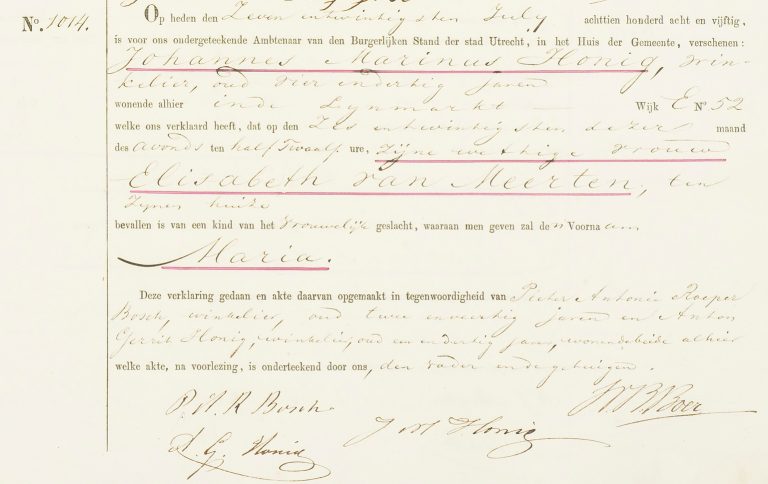 No. 1014.
Op heden den Zeven entwintigsten July achttien honderd acht en vijftig,
is voor ons ondergeteekende Ambtenaar van den Burgerlijken Stand der stad Utrecht, in het Huis der Gemeente, verschenen:
Johannes Marinus Honig, win-
kelier, oud vier endertig jaren
wonende alhier inde Lynmarkt Wijk E No 52
welke ons verklaard heeft, dat op den Zes entwintigsten dezer maand
des avonds ten half Twaalf ure. Zijne wettige vrouw
Elisabeth van Meerten, ten
Zynen huize
bevallen is van een kind van het Vrouwelijk geslacht, waaraan men geven zal den Voornaam
Maria.
Deze verklaring gedaan en akte daarvan opgemaakt in tegenwoordigheid van Pieter Antonie Roeper
Bosch, winkelier, oud twee enveertig jaren en Anton
Gerrit Honig, winkelier, oud een en dertig jaren, wonende beide alhier
welke akte, na voorlezing, is onderteekend door ons, den vader en de getuigen.
P. A. R Bosch
J M Honig
A. G. Honig